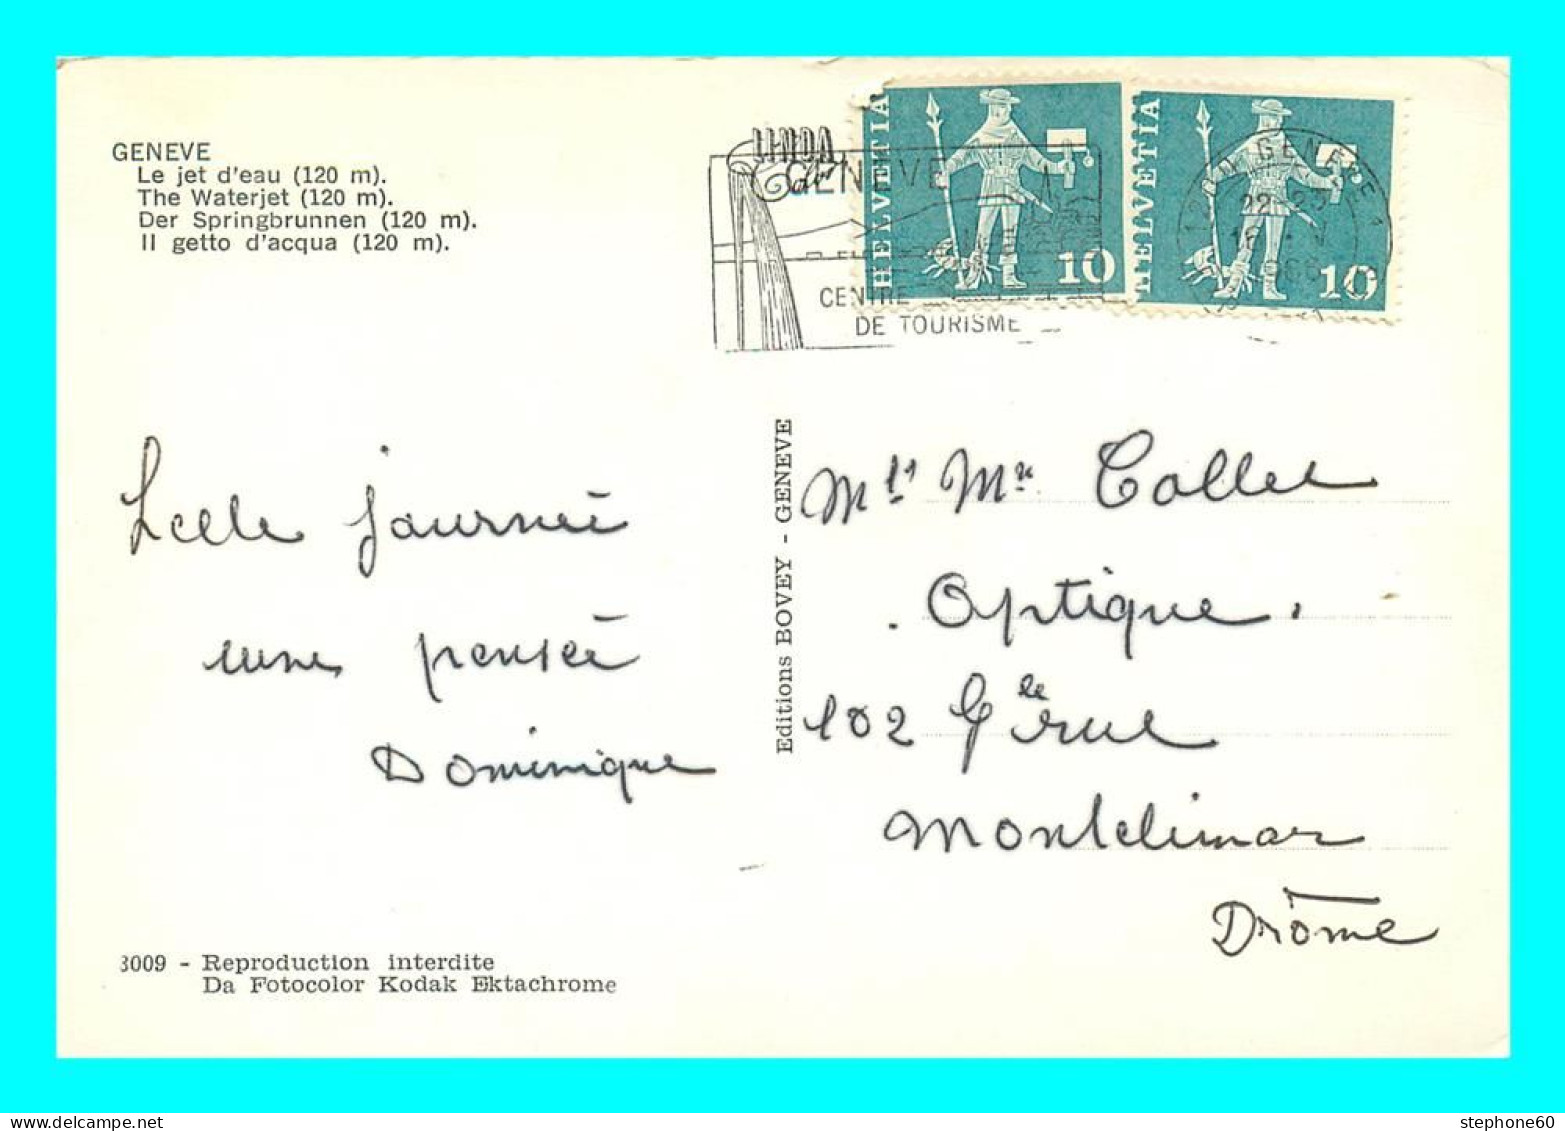 GENEVE
Le jet d'eau (120 m).
The Waterjet (120 m).
Der Springbrunnen (120 m).
Il getto d'acqua (120 m).
LINDA
Color
GENÈVE
CENTRE
DE TOURISME
HELVETIA
10
HELVETIA
10
GENEVE 1
22-23
16
Belle journée
une pensée
Dominique
Editions BOVEY - GENEVE
Mr Collet
Optique
102 Gde rue
Montelimar
Drôme
3009 - Reproduction interdite
Da Fotocolor Kodak Ektachrome
stephone60